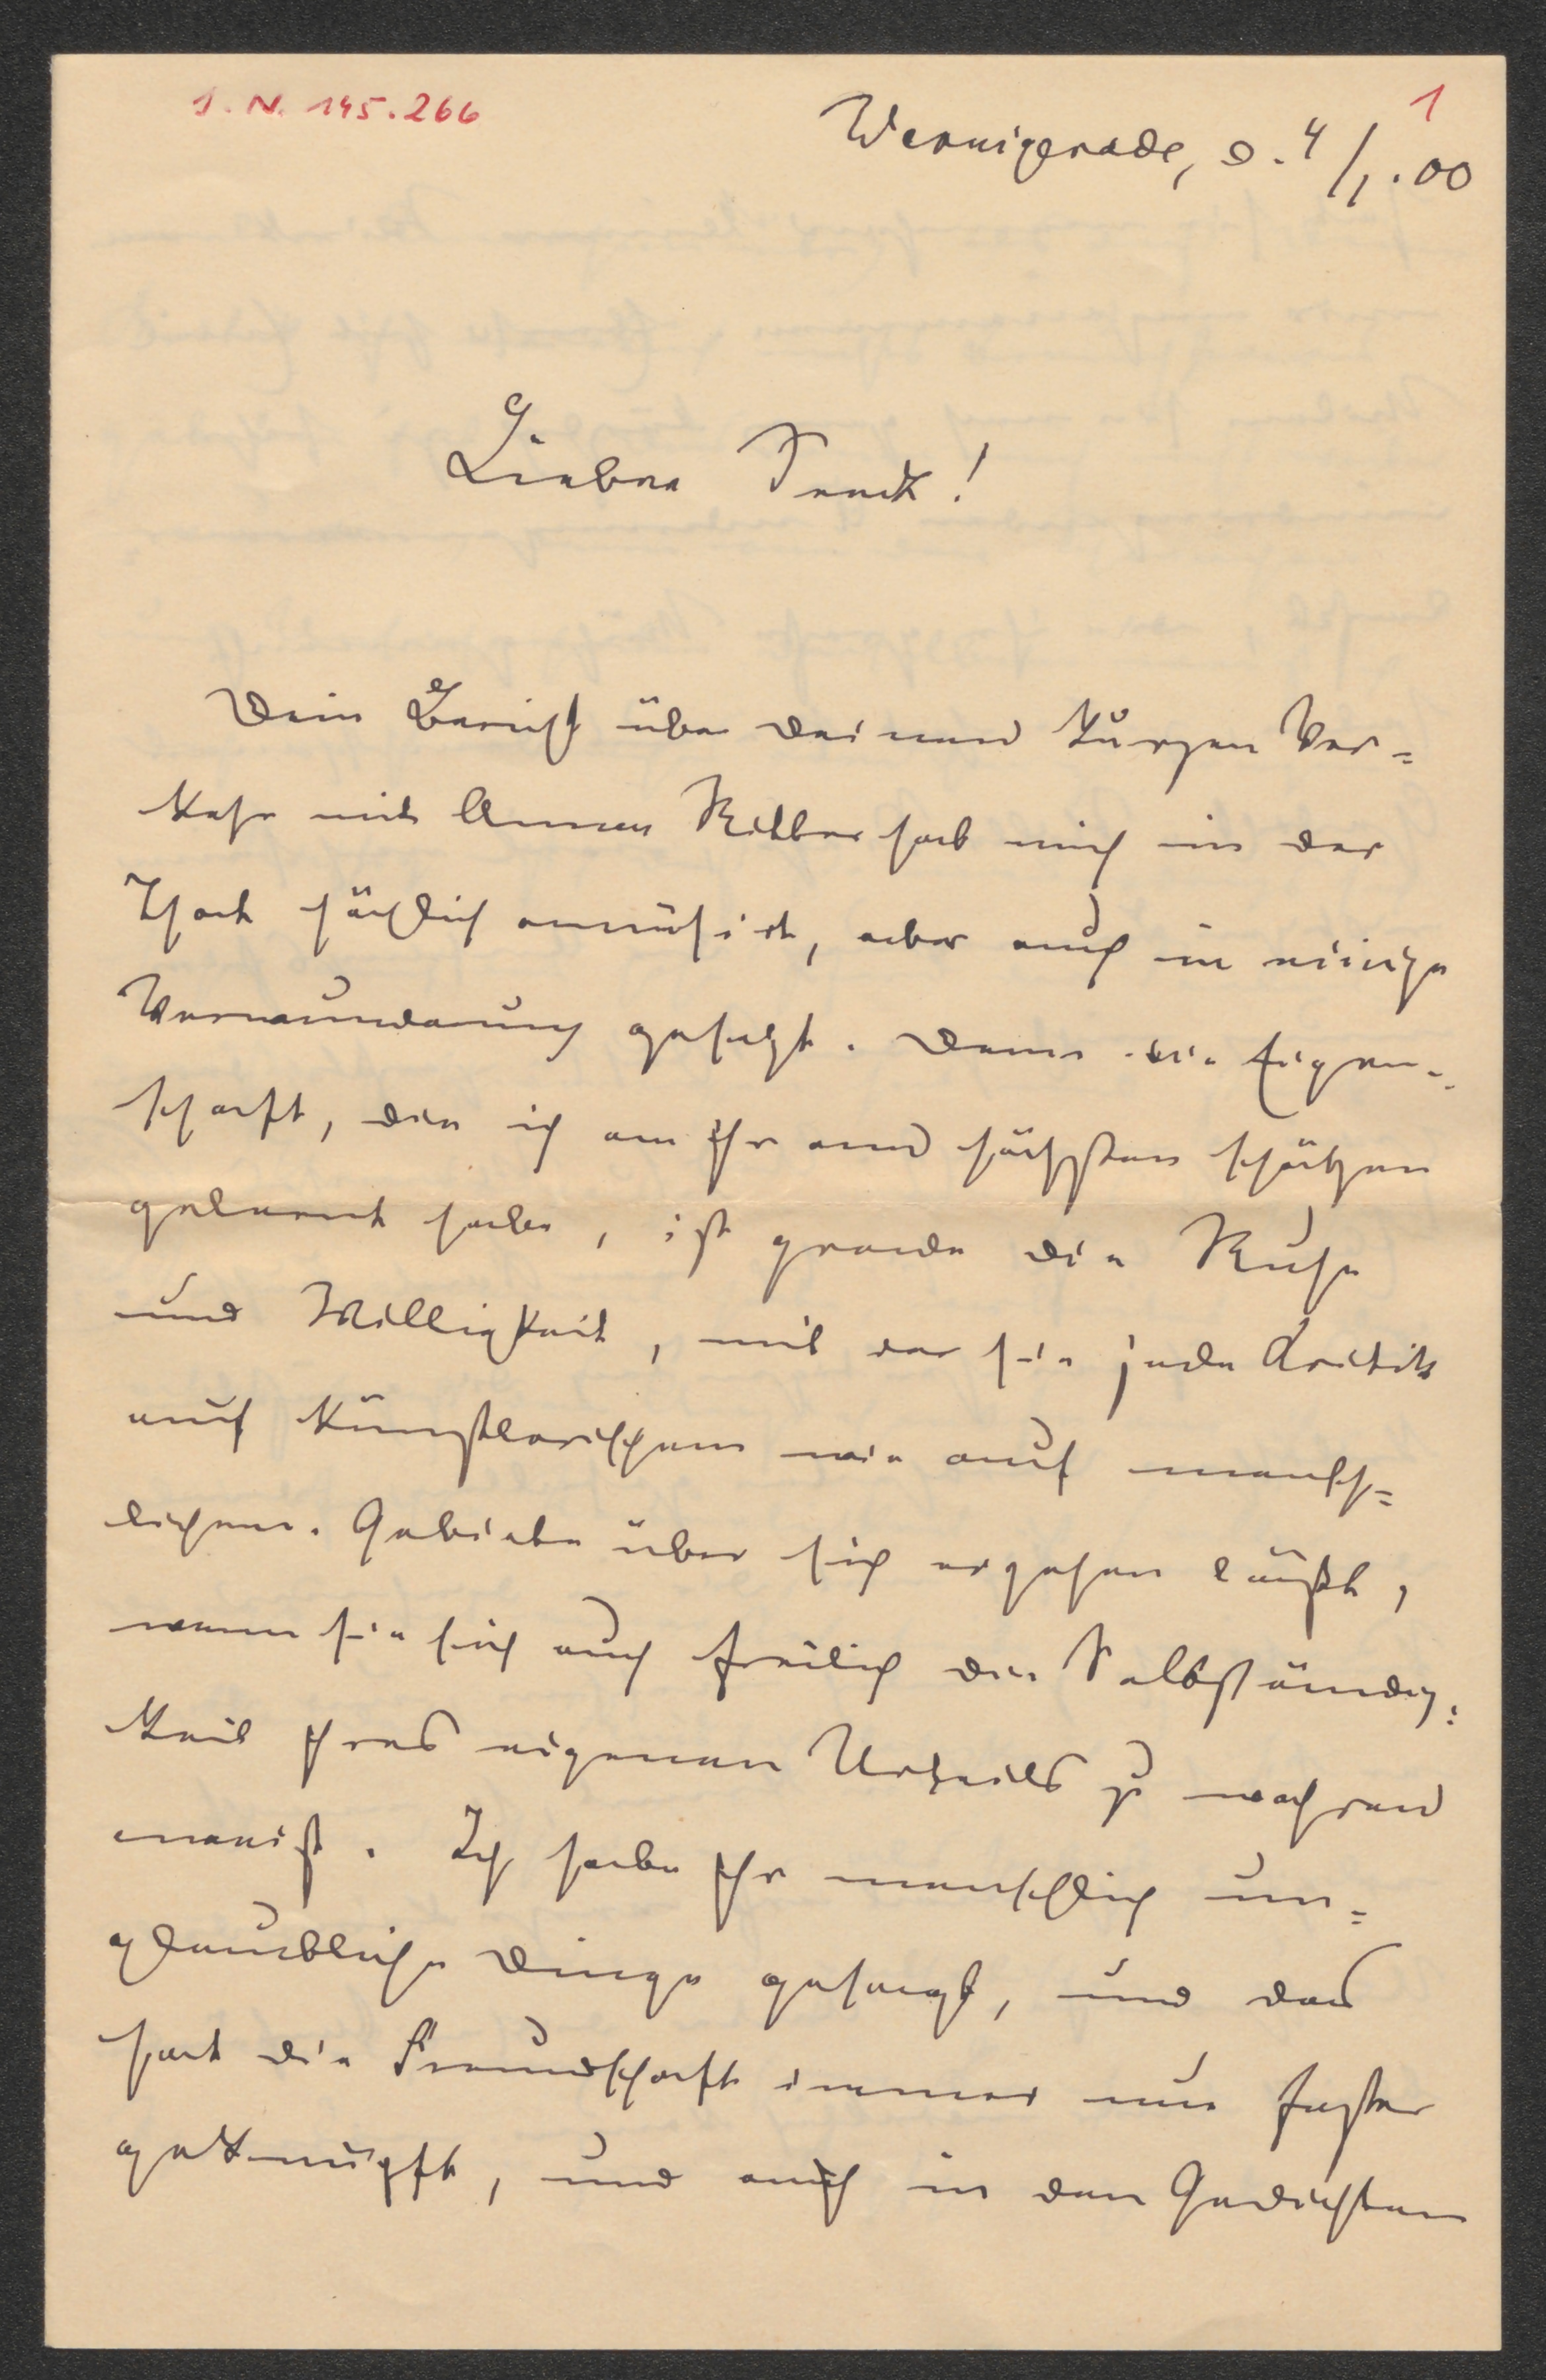 J. N. 145.266
1
Wernigerode, d. 4/1. 00
Lieber
Dein Bericht über Deinen kurzen Ver=
kehr mit Anna Ritter hat mich in der
That höchlich amüsirt, aber auch in einige
Verwunderung gesetzt. Denn die Eigen=
schaft, die ich an ihr am höchsten schätzen
gelernt habe, ist grade die Ruhe
und Willigkeit, mit der sie jede Kritik
auf künstlerischem wie auf mensch=
lichem Gebiete über sich ergehen läßt,
wenn sie sich auch freilich die Selbständig=
keit ihres eigenen Urtheils zu wahren
weiß. Ich habe ihr menschlich un=
glaubliche Dinge gesagt, und das
hat die Freundschaft immer nur fester
geknüpft, und auch in den Gedichten